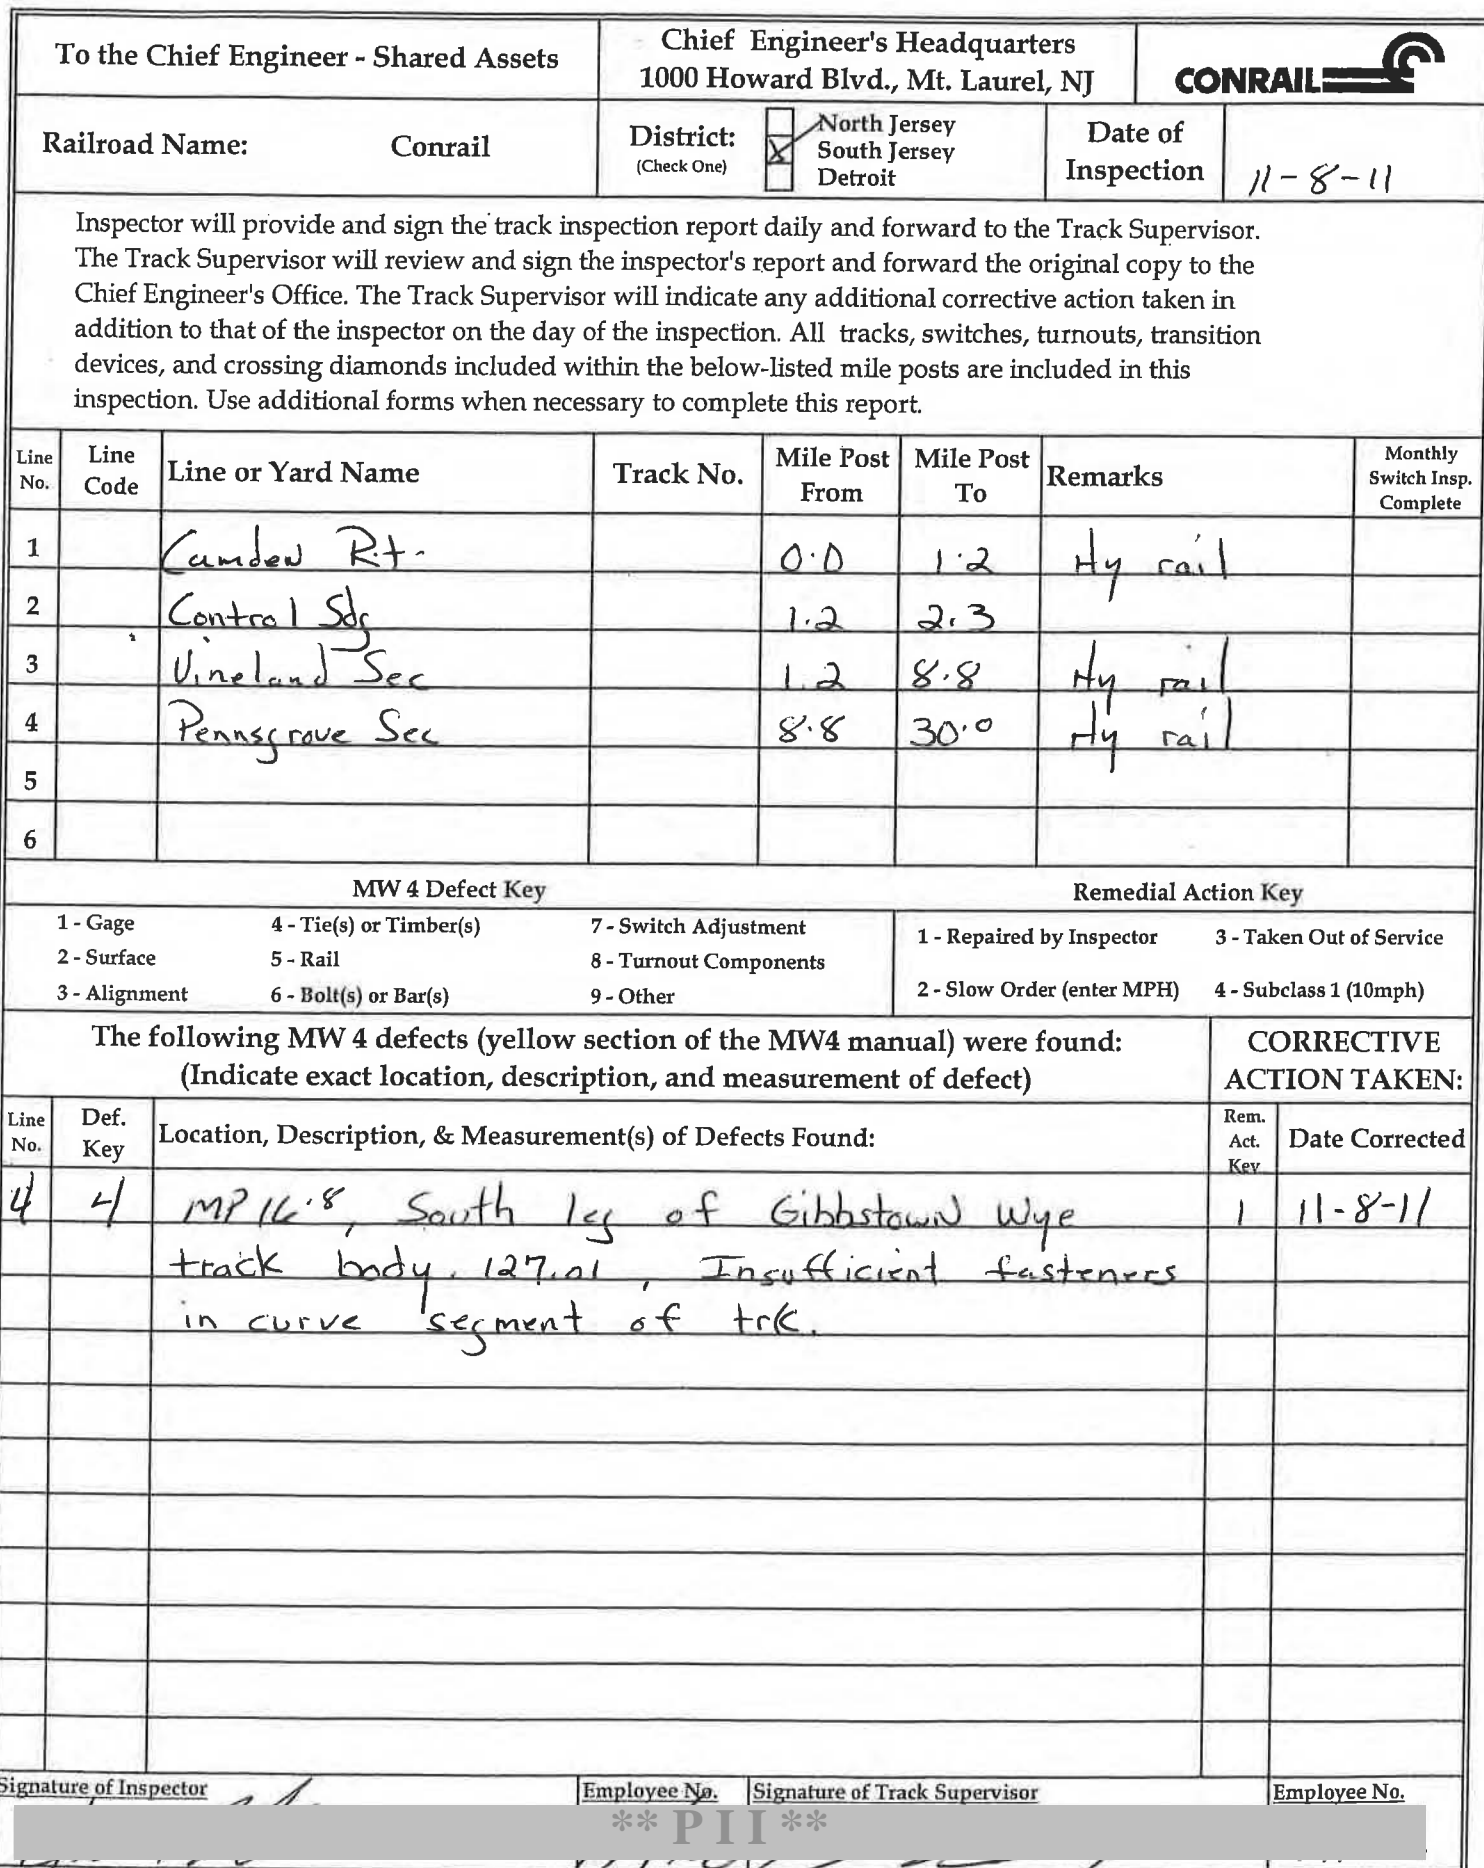 To the Chief Engineer - Shared Assets
Chief Engineer's Headquarters
1000 Howard Blvd., Mt. Laurel, NJ
CONRAIL
Railroad Name: Conrail
District:
(Check One)
North Jersey
X South Jersey
Detroit
Date of
Inspection
11-8-11
Inspector will provide and sign the track inspection report daily and forward to the Track Supervisor.
The Track Supervisor will review and sign the inspector's report and forward the original copy to the
Chief Engineer's Office. The Track Supervisor will indicate any additional corrective action taken in
addition to that of the inspector on the day of the inspection. All tracks, switches, turnouts, transition
devices, and crossing diamonds included within the below-listed mile posts are included in this
inspection. Use additional forms when necessary to complete this report.
Line No. Line Code Line or Yard Name Track No. Mile Post From Mile Post To Remarks Monthly Switch Insp. Complete
1 Camden R.t. 0.0 1.2 Hy rail
2 Control Sdg 1.2 2.3
3 Vineland Sec 1.2 8.8 Hy rail
4 Pennsgrove Sec 8.8 30.0 Hy rail
5
6
MW 4 Defect Key
1 - Gage 4 - Tie(s) or Timber(s) 7 - Switch Adjustment
2 - Surface 5 - Rail 8 - Turnout Components
3 - Alignment 6 - Bolt(s) or Bar(s) 9 - Other
Remedial Action Key
1 - Repaired by Inspector 3 - Taken Out of Service
2 - Slow Order (enter MPH) 4 - Subclass 1 (10mph)
The following MW 4 defects (yellow section of the MW4 manual) were found:
(Indicate exact location, description, and measurement of defect)
CORRECTIVE
ACTION TAKEN:
Line No. Def. Key Location, Description, & Measurement(s) of Defects Found: Rem. Act. Key Date Corrected
4 4 MP 16.8, South leg of Gibbstown Wye 1 11-8-11
track body. 127.01, Insufficient fasteners
in curve segment of trk.
Signature of Inspector Employee No. Signature of Track Supervisor Employee No.
** P I I **